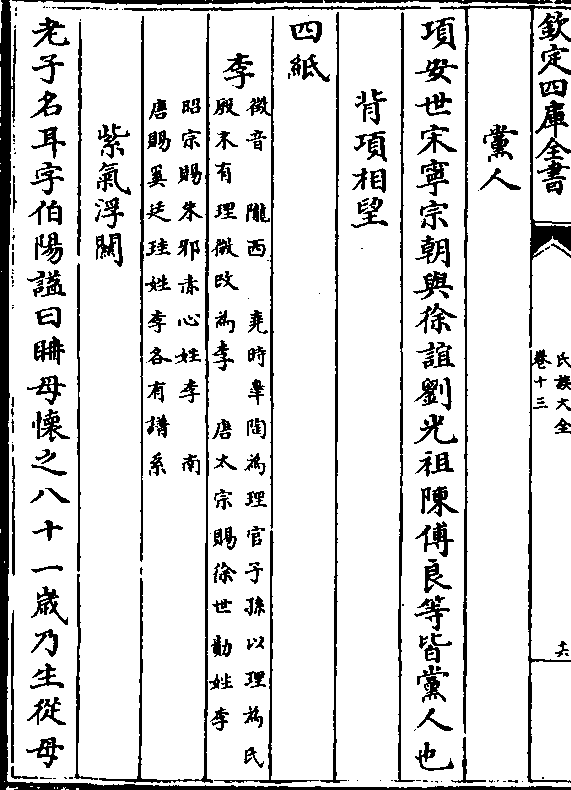 欽定四庫全書
氏族大全
卷十三
十六
黨人
項安世宋寧宗朝與徐誼劉光祖陳傅良等皆黨人也
背項相望
四紙
李
徵音 隴西 堯時臯陶為理官子孫以理為氏
殷末有理徵改為李 唐太宗賜徐世勣姓李
昭宗賜朱邪赤心姓李 南
唐賜奚廷珪姓李各有譜系
紫氣浮關
老子名耳字伯陽諡曰耼母懷之八十一歲乃生從母